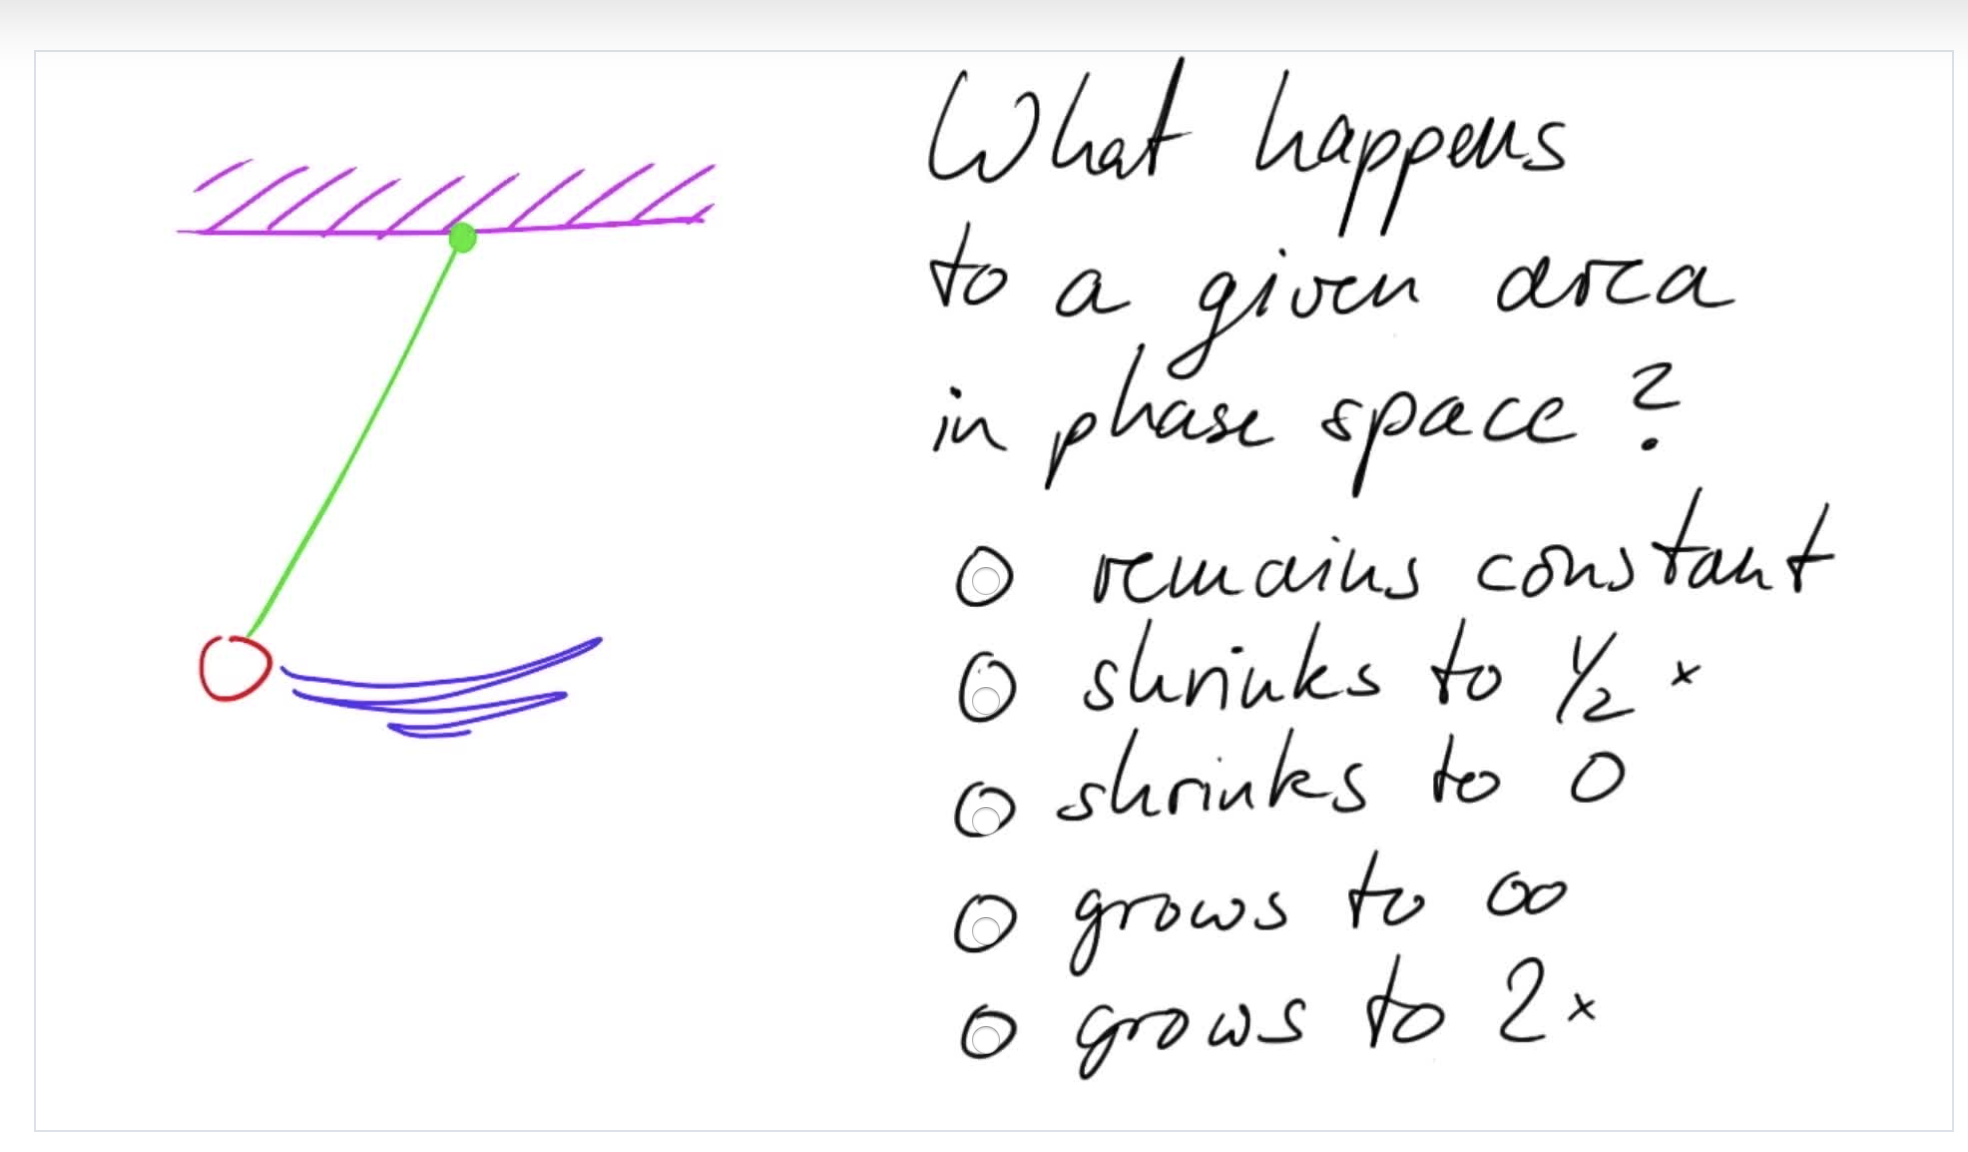 What happens
to a given area
in phase space?
O remains constant
O shrinks to 1/2 x
O shrinks to 0
O grows to ∞
O grows to 2x